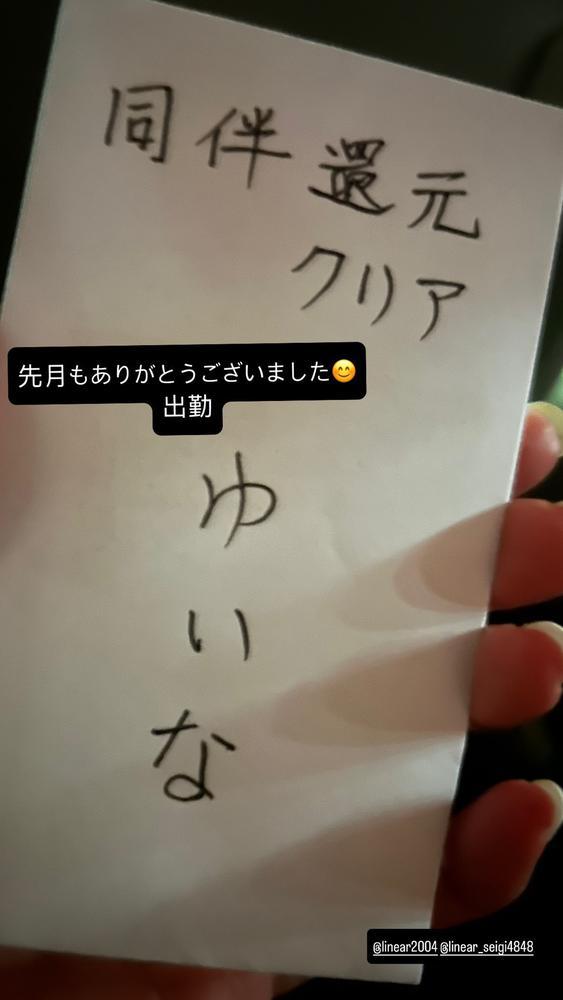 同伴還元
クリア
先月もありがとうございました😊
出勤
ゆいな
@linear2004 @linear_seigi4848